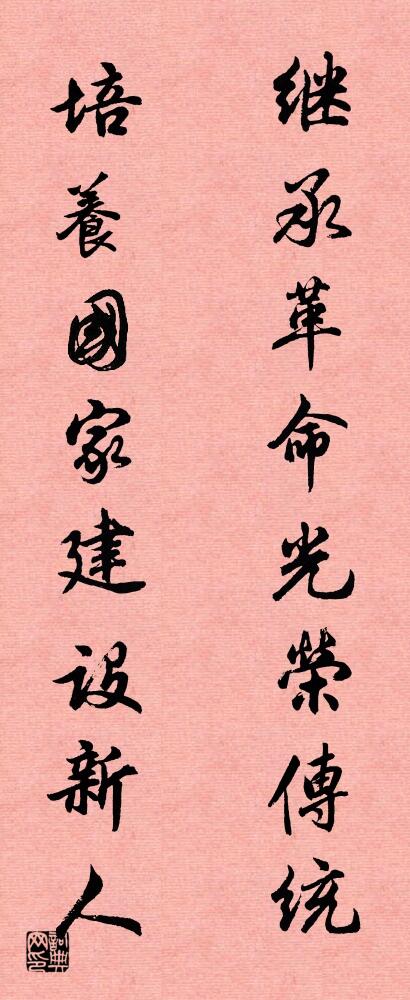 继承革命光榮傳统
培養國家建设新人